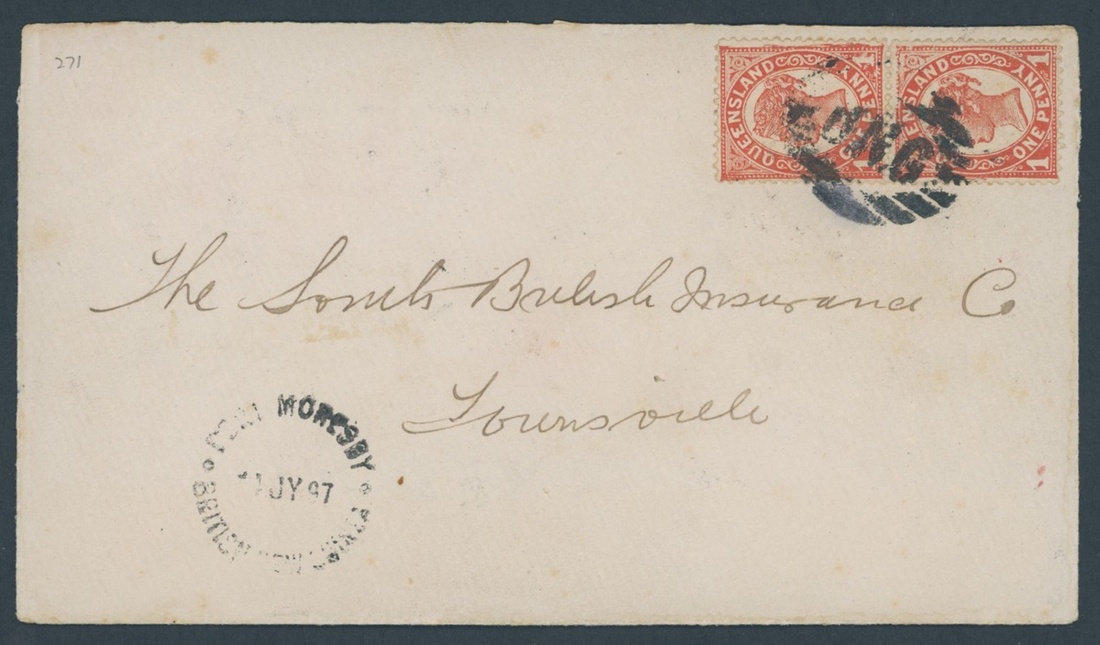 271
QUEENSLAND ONE PENNY 1
QUEENSLAND ONE PENNY 1
The South British Insurance Co
Townsville
PORT MORESBY
JY 97
BRITISH NEW GUINEA